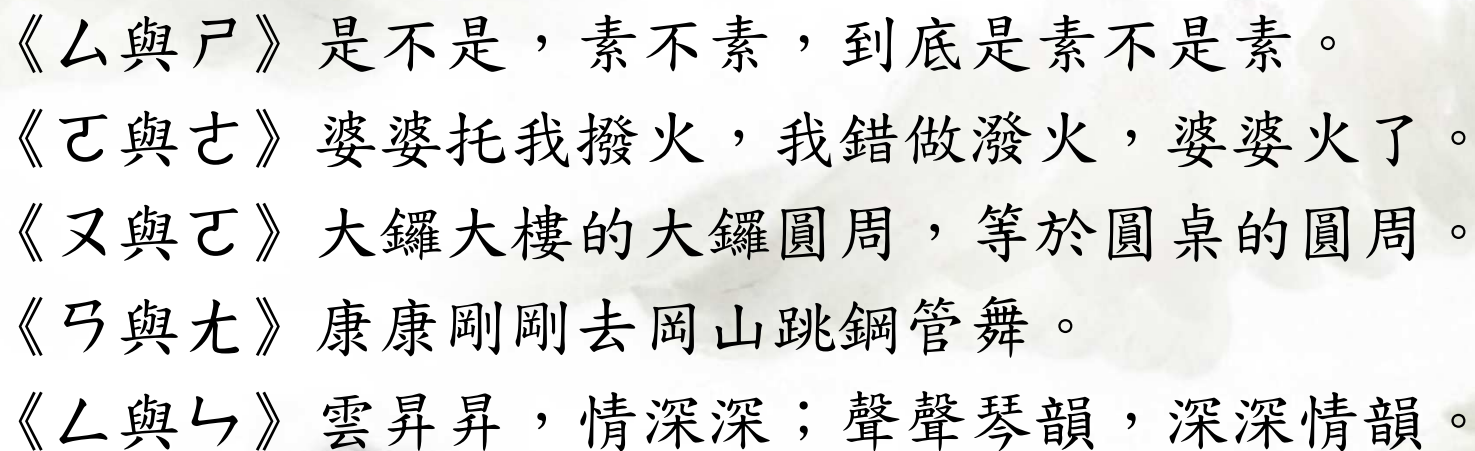 《ㄙ與ㄕ》是不是，素不素，到底是素不是素。
《ㄛ與ㄜ》婆婆托我撥火，我錯做潑火，婆婆火了。
《ㄡ與ㄛ》大鑼大樓的大鑼圓周，等於圓桌的圓周。
《ㄢ與ㄤ》康康剛剛去岡山跳鋼管舞。
《ㄥ與ㄣ》雲昇昇，情深深；聲聲琴韻，深深情韻。